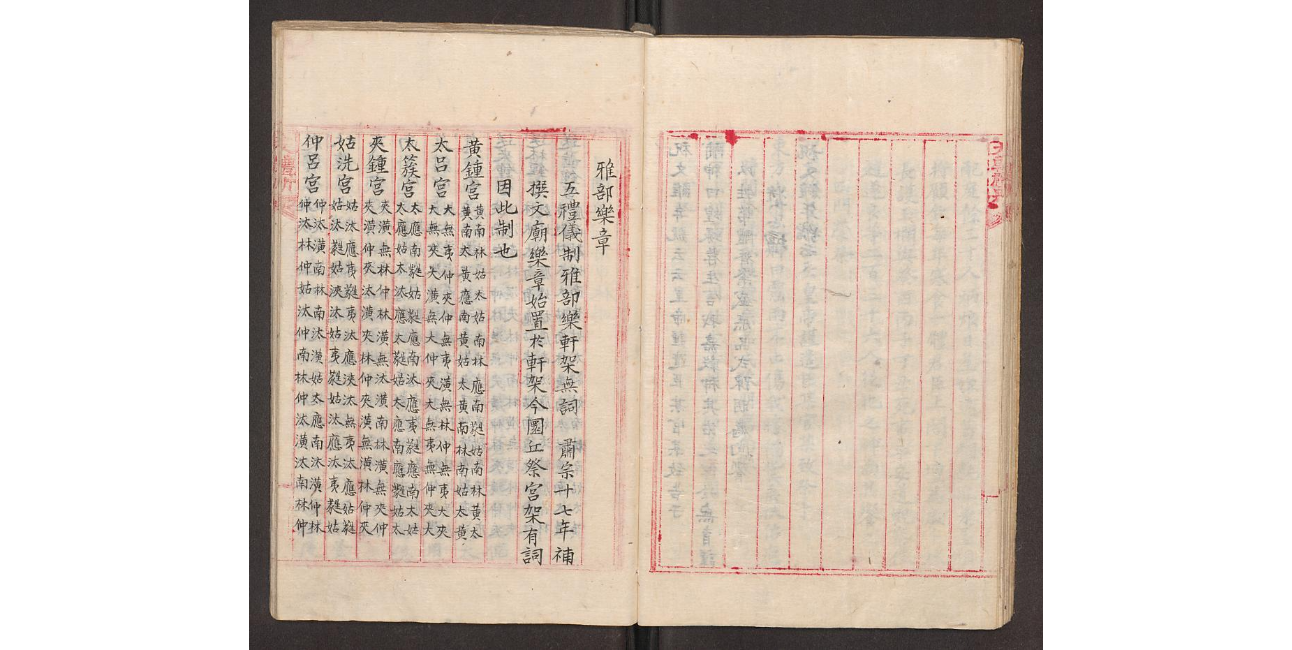 雅部樂章
五禮儀制雅部樂軒架無詞 肅宗十七年補
撰文廟樂章始置於軒架今圜丘祭宮架有詞
因此制也
黃鍾宮
黃南林姑太姑南林應南蕤姑南林黃太
黃南太黃應南黃姑太黃南林南姑太黃
太呂宮
大無夷仲夾仲無夷潢無林仲無夷大夾
大無夾大潢無大仲夾大無夷無仲夾大
太簇宮
太應南蕤姑蕤應南汰應夷蕤應南太姑
太應姑太汰應太蕤姑太應南應蕤姑太
夾鍾宮
夾潢無林仲林潢無汰潢南林潢無夾仲
夾潢仲夾汰潢夾林仲夾潢無潢林仲夾
姑洗宮
姑汰應夷蕤夷汰應浹汰無夷汰應姑蕤
姑汰蕤姑浹汰姑夷蕤姑汰應汰夷蕤姑
仲呂宮
仲汰潢南林南汰潢姑汰應南汰潢仲林
仲汰林仲沽汰仲南林仲汰潢汰南林仲